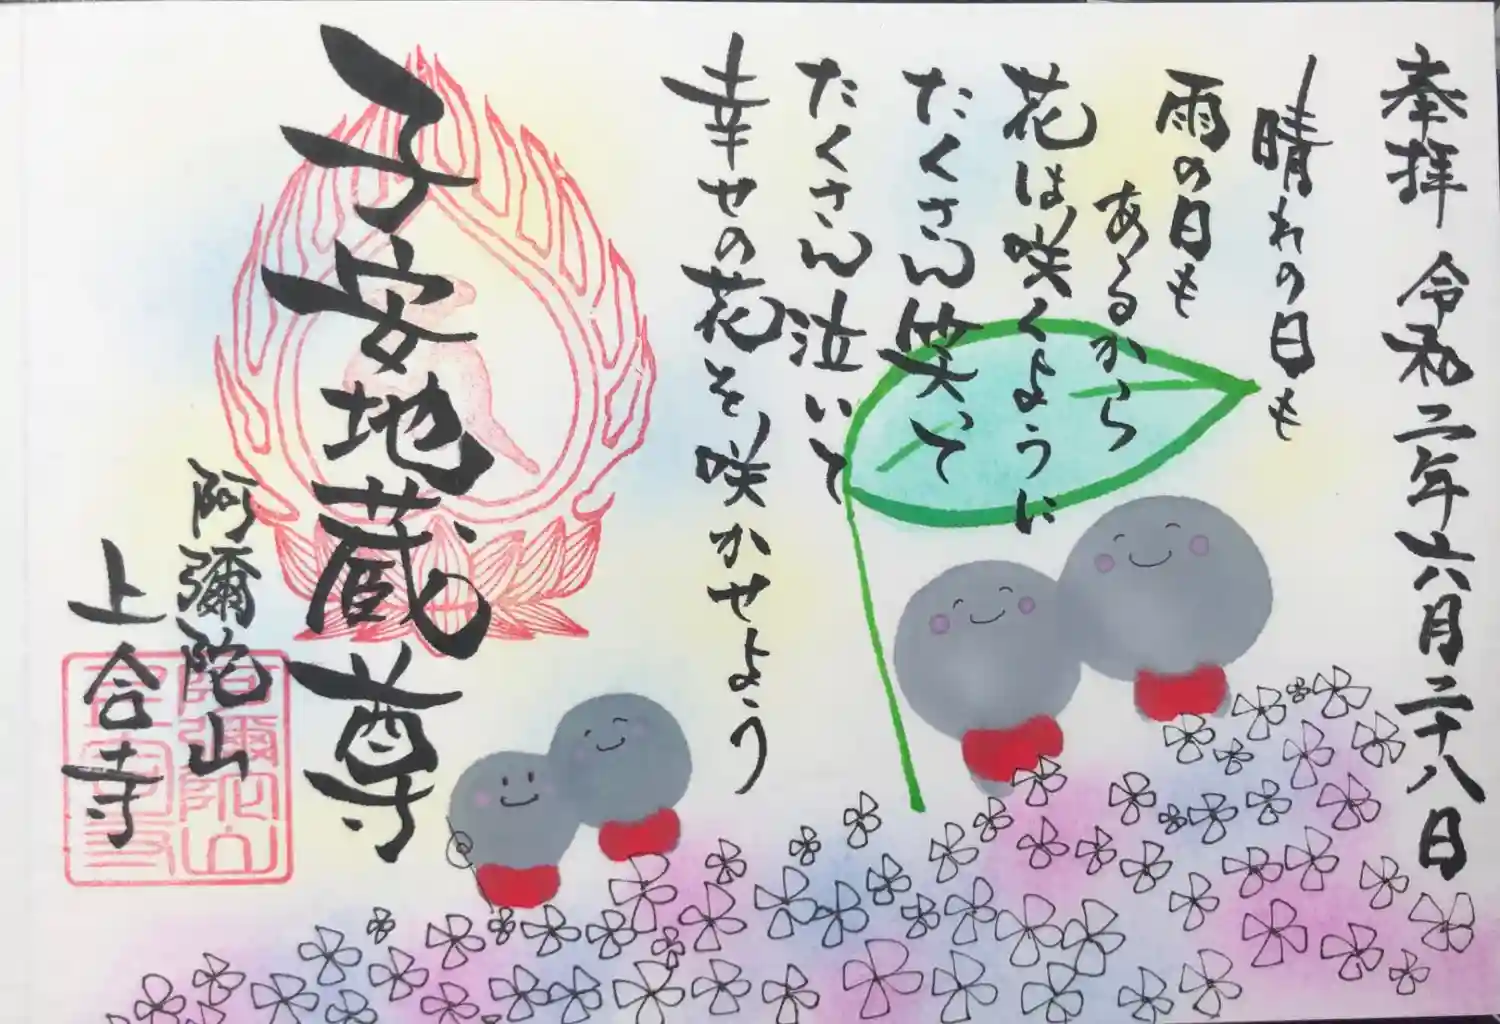 奉拝 令和二年六月二十八日
晴れの日も
雨の日も
あるから
花は咲くように
たくさん笑って
たくさん泣いて
幸せの花を咲かせよう
子安地蔵尊
阿彌陀山
上合寺